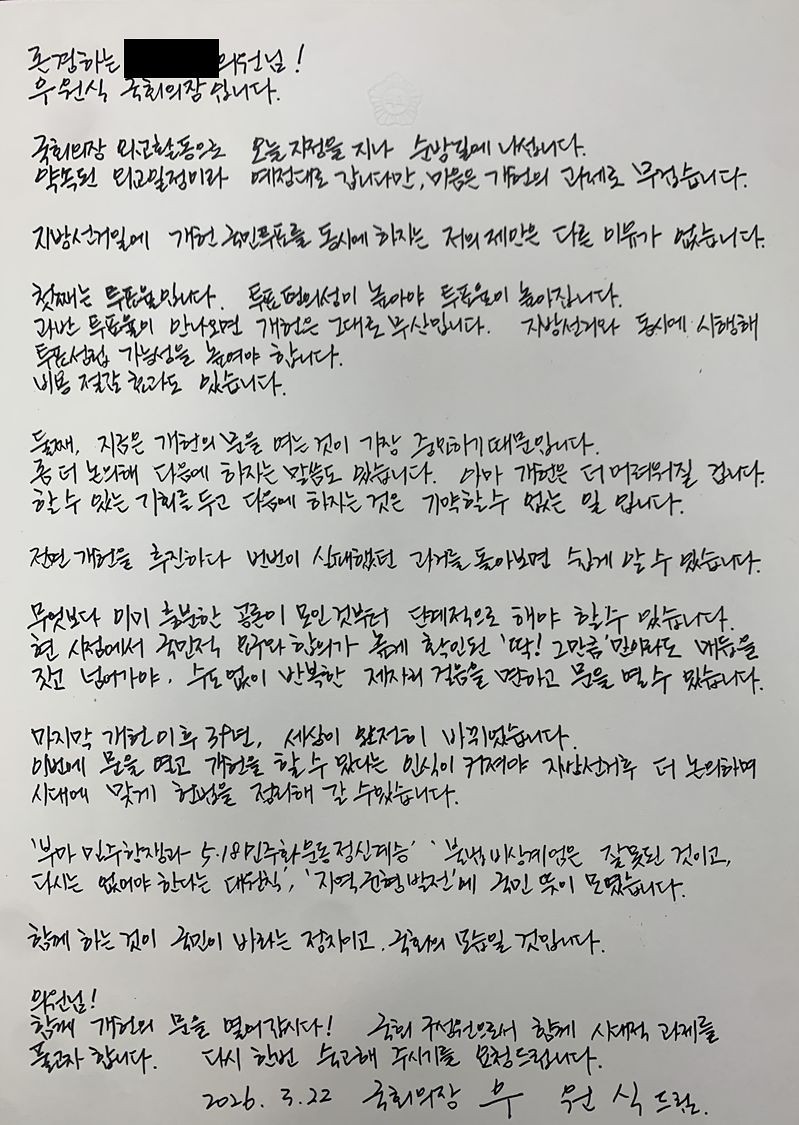 존경하는 의원님!
우원식 국회의장입니다.
국회의장 외교활동으로 오늘 자정을 지나 순방길에 나섭니다.
약속된 외교일정이라 예정대로 갑니다만, 마음은 개헌의 과제로 무겁습니다.
지방선거일에 개헌 국민투표를 동시에 하자는 저의 제안은 다른 이유가 없습니다.
첫째는 투표율입니다. 투표 편의성이 높아야 투표율이 높아집니다.
과반 투표율이 안나오면 개헌은 그대로 무산입니다. 지방선거와 동시에 시행해
투표성립 가능성을 높여야 합니다.
비용 절감 효과도 있습니다.
둘째, 지금은 개헌의 문을 여는 것이 가장 중요하기 때문입니다.
좀 더 논의해 다음에 하자는 말씀도 있습니다. 아마 개헌은 더 어려워질 겁니다.
할 수 있는 기회를 두고 다음에 하자는 것은 기약할 수 없는 일 입니다.
전면 개헌을 추진하다 번번이 실패했던 과거를 돌아보면 쉽게 알 수 있습니다.
무엇보다 이미 충분한 공론이 모인 것부터 단계적으로 해야 할 수 있습니다.
현 시점에서 국민적 요구와 합의가 높게 확인된 '딱! 그만큼'만이라도 매듭을
짓고 넘어가야, 수도 없이 반복한 제자리 걸음을 면하고 문을 열 수 있습니다.
마지막 개헌 이후 39년, 세상이 완전히 바뀌었습니다.
이번에 문을 열고 개헌을 할 수 있다는 인식이 커져야 지방선거후 더 논의하며
시대에 맞게 헌법을 정리해 갈 수 있습니다.
'부마 민주항쟁과 5·18민주화운동 정신계승' '불법비상계엄은 잘못된 것이고,
다시는 없어야 한다는 대원칙', '지역 균형 발전'에 국민 뜻이 모였습니다.
함께 하는 것이 국민이 바라는 정치이고, 국회의 모습일 것입니다.
의원님!
함께 개헌의 문을 열어갑시다! 국회 구성원으로서 함께 시대적 과제를
풀고자 합니다. 다시 한번 숙고해 주시기를 요청드립니다.
2026. 3. 22 국회의장 우 원 식 드림.